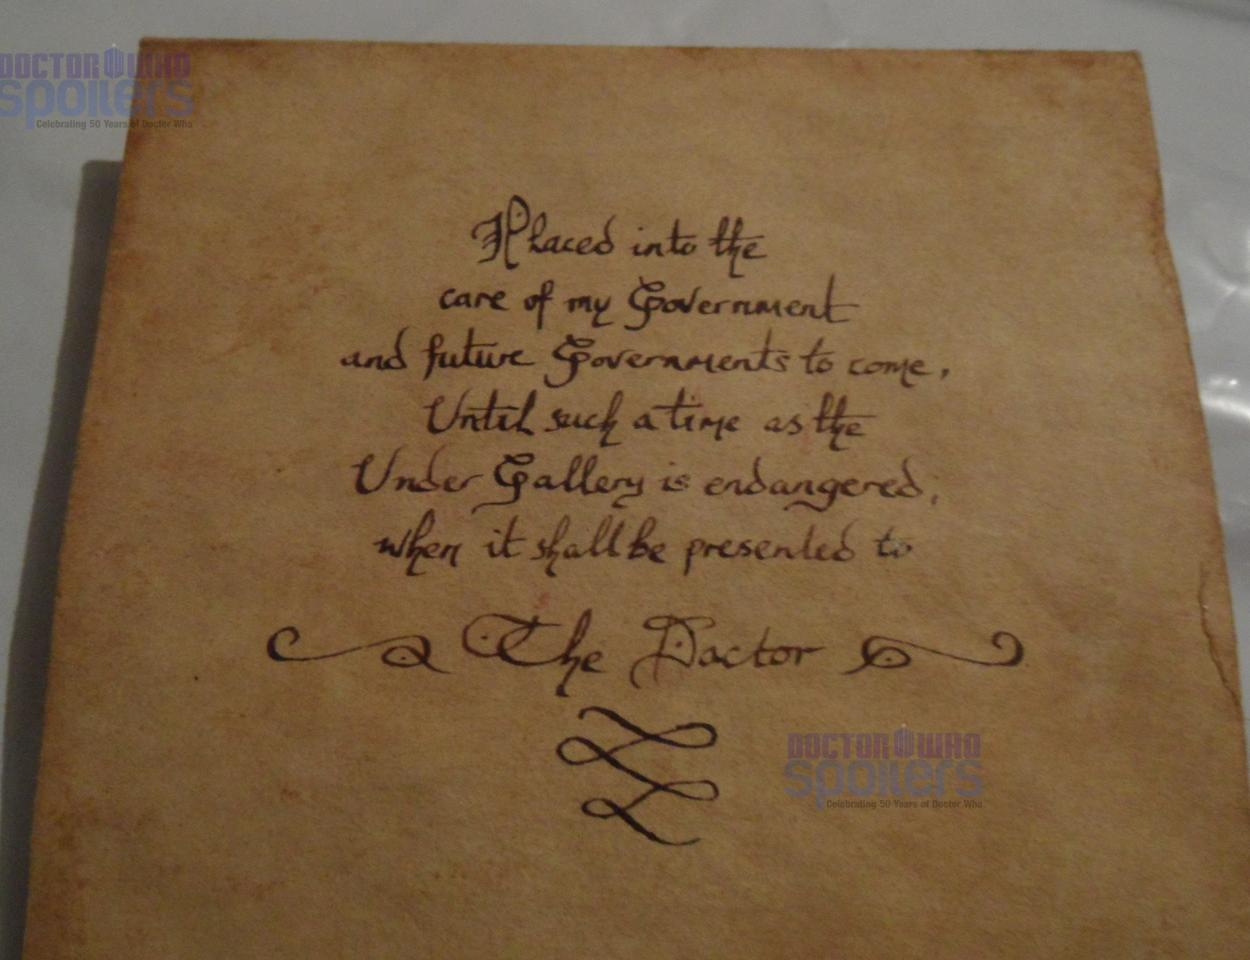 DOCTOR WHO
spoilers
Celebrating 50 Years of Doctor Who
Placed into the
care of my Government
and future Governments to come,
Until such a time as the
Under Gallery is endangered,
when it shall be presented to
The Doctor
DOCTOR WHO
spoilers
Celebrating 50 Years of Doctor Who